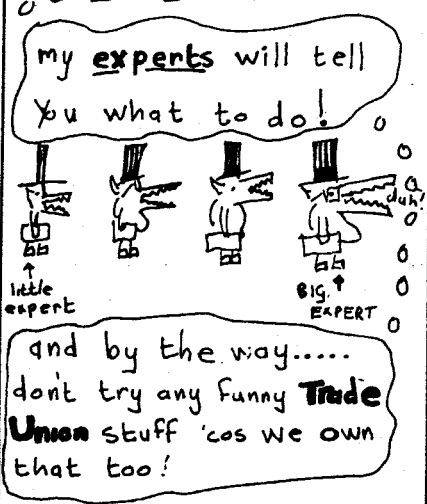 my experts will tell
you what to do!
duh!
little
expert
BIG
EXPERT
and by the way.....
don't try any funny Trade
Union stuff 'cos we own
that too!